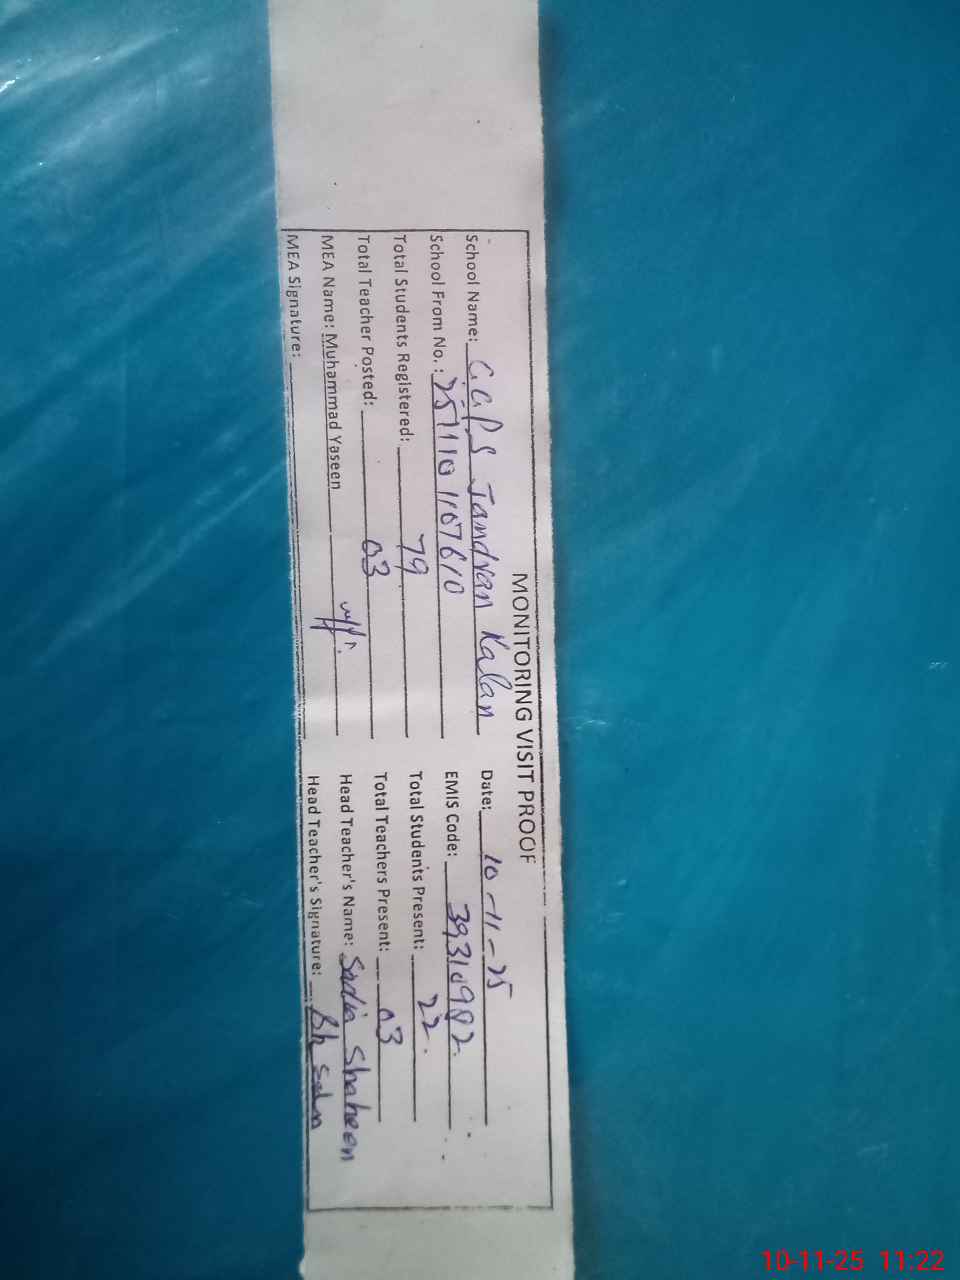 MONITORING VISIT PROOF
School Name: G.G.P.S Jandran Kalan Date: 10-11-25
School From No.: 251110 1107610 EMIS Code: 39310982
Total Students Registered: 79 Total Students Present: 22
Total Teacher Posted: 03 Total Teachers Present: 03
MEA Name: Muhammad Yaseen Head Teacher's Name: Sadia Shaheen
MEA Signature: Head Teacher's Signature:
10-11-25 11:22